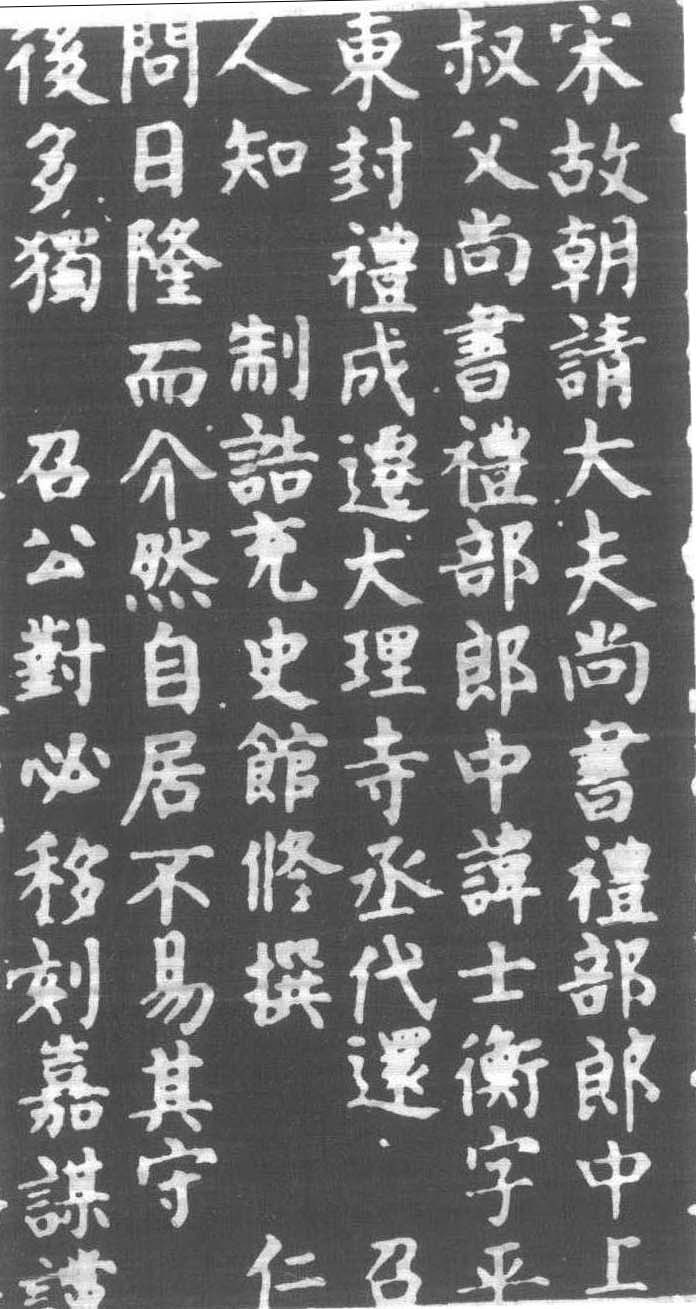 宋故朝請大夫尚書禮部郎中上
叔父尚書禮部郎中諱士衡字平
東封禮成遷大理寺丞代還 召
人知 制誥充史館修撰 仁
問日隆而介然自居不易其守
後多獨 召公對必移刻嘉謀